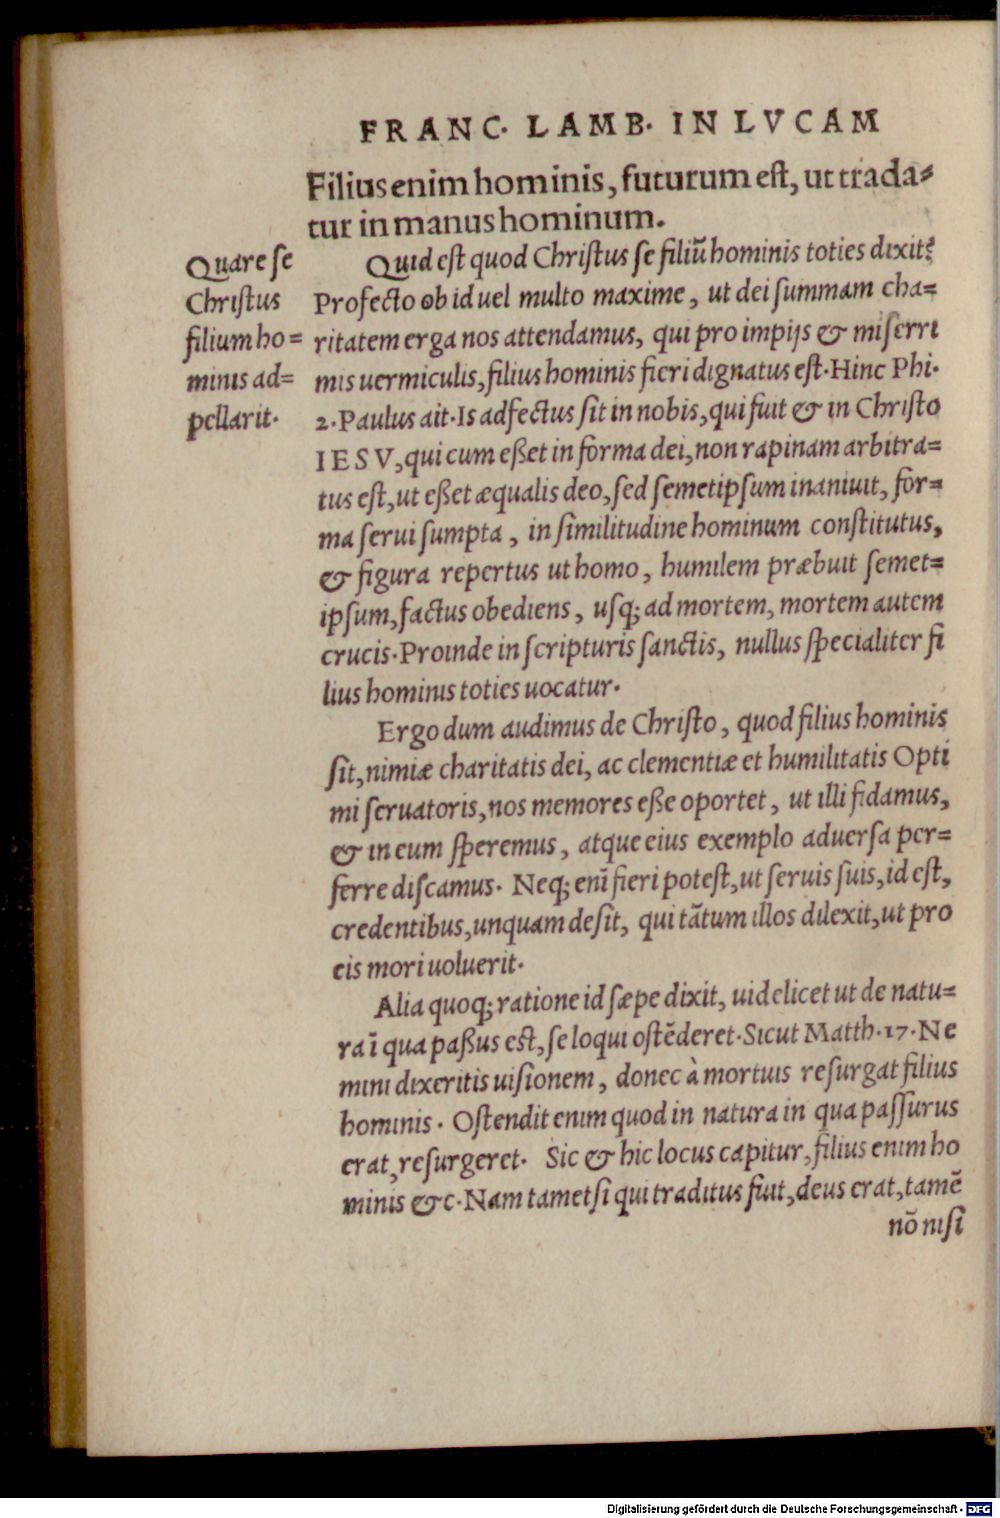 FRANC. LAMB. IN LVCAM
Filius enim hominis, futurum est, ut trada-
tur in manus hominum.
Quare se
Christus
filium ho=
minis ad=
pellarit.
Quid est quod Christus se filiũ hominis toties dixit?
Profecto ob id uel multo maxime, ut dei summam cha=
ritatem erga nos attendamus, qui pro impijs & miserri
mis uermiculis, filius hominis fieri dignatus est. Hinc Phi.
2. Paulus ait. Is adfectus sit in nobis, qui fuit & in Christo
IESV, qui cum eßet in forma dei, non rapinam arbitra=
tus est, ut eßet æqualis deo, sed semetipsum inaniuit, for=
ma serui sumpta, in similitudine hominum constitutus,
& figura repertus ut homo, humilem præbuit semet=
ipsum, factus obediens, usq; ad mortem, mortem autem
crucis. Proinde in scripturis sanctis, nullus specialiter fi
lius hominis toties uocatur.
Ergo dum audimus de Christo, quod filius hominis
sit, nimiæ charitatis dei, ac clementiæ et humilitatis Opti
mi seruatoris, nos memores eße oportet, ut illi fidamus,
& in eum speremus, atque eius exemplo aduersa per=
ferre discamus. Neq; enĩ fieri potest, ut seruis suis, id est,
credentibus, unquam desit, qui tãtum illos dilexit, ut pro
eis mori uoluerit.
Alia quoq; ratione id sæpe dixit, uidelicet ut de natu=
ra ĩ qua paßus est, se loqui ostẽderet. Sicut Matth. 17. Ne
mini dixeritis uisionem, donec à mortuis resurgat filius
hominis. Ostendit enim quod in natura in qua passurus
erat, resurgeret. Sic & hic locus capitur, filius enim ho
minis &c. Nam tametsi qui traditus fuit, deus erat, tamẽ
nõ nisi
Digitalisierung gefördert durch die Deutsche Forschungsgemeinschaft - DFG